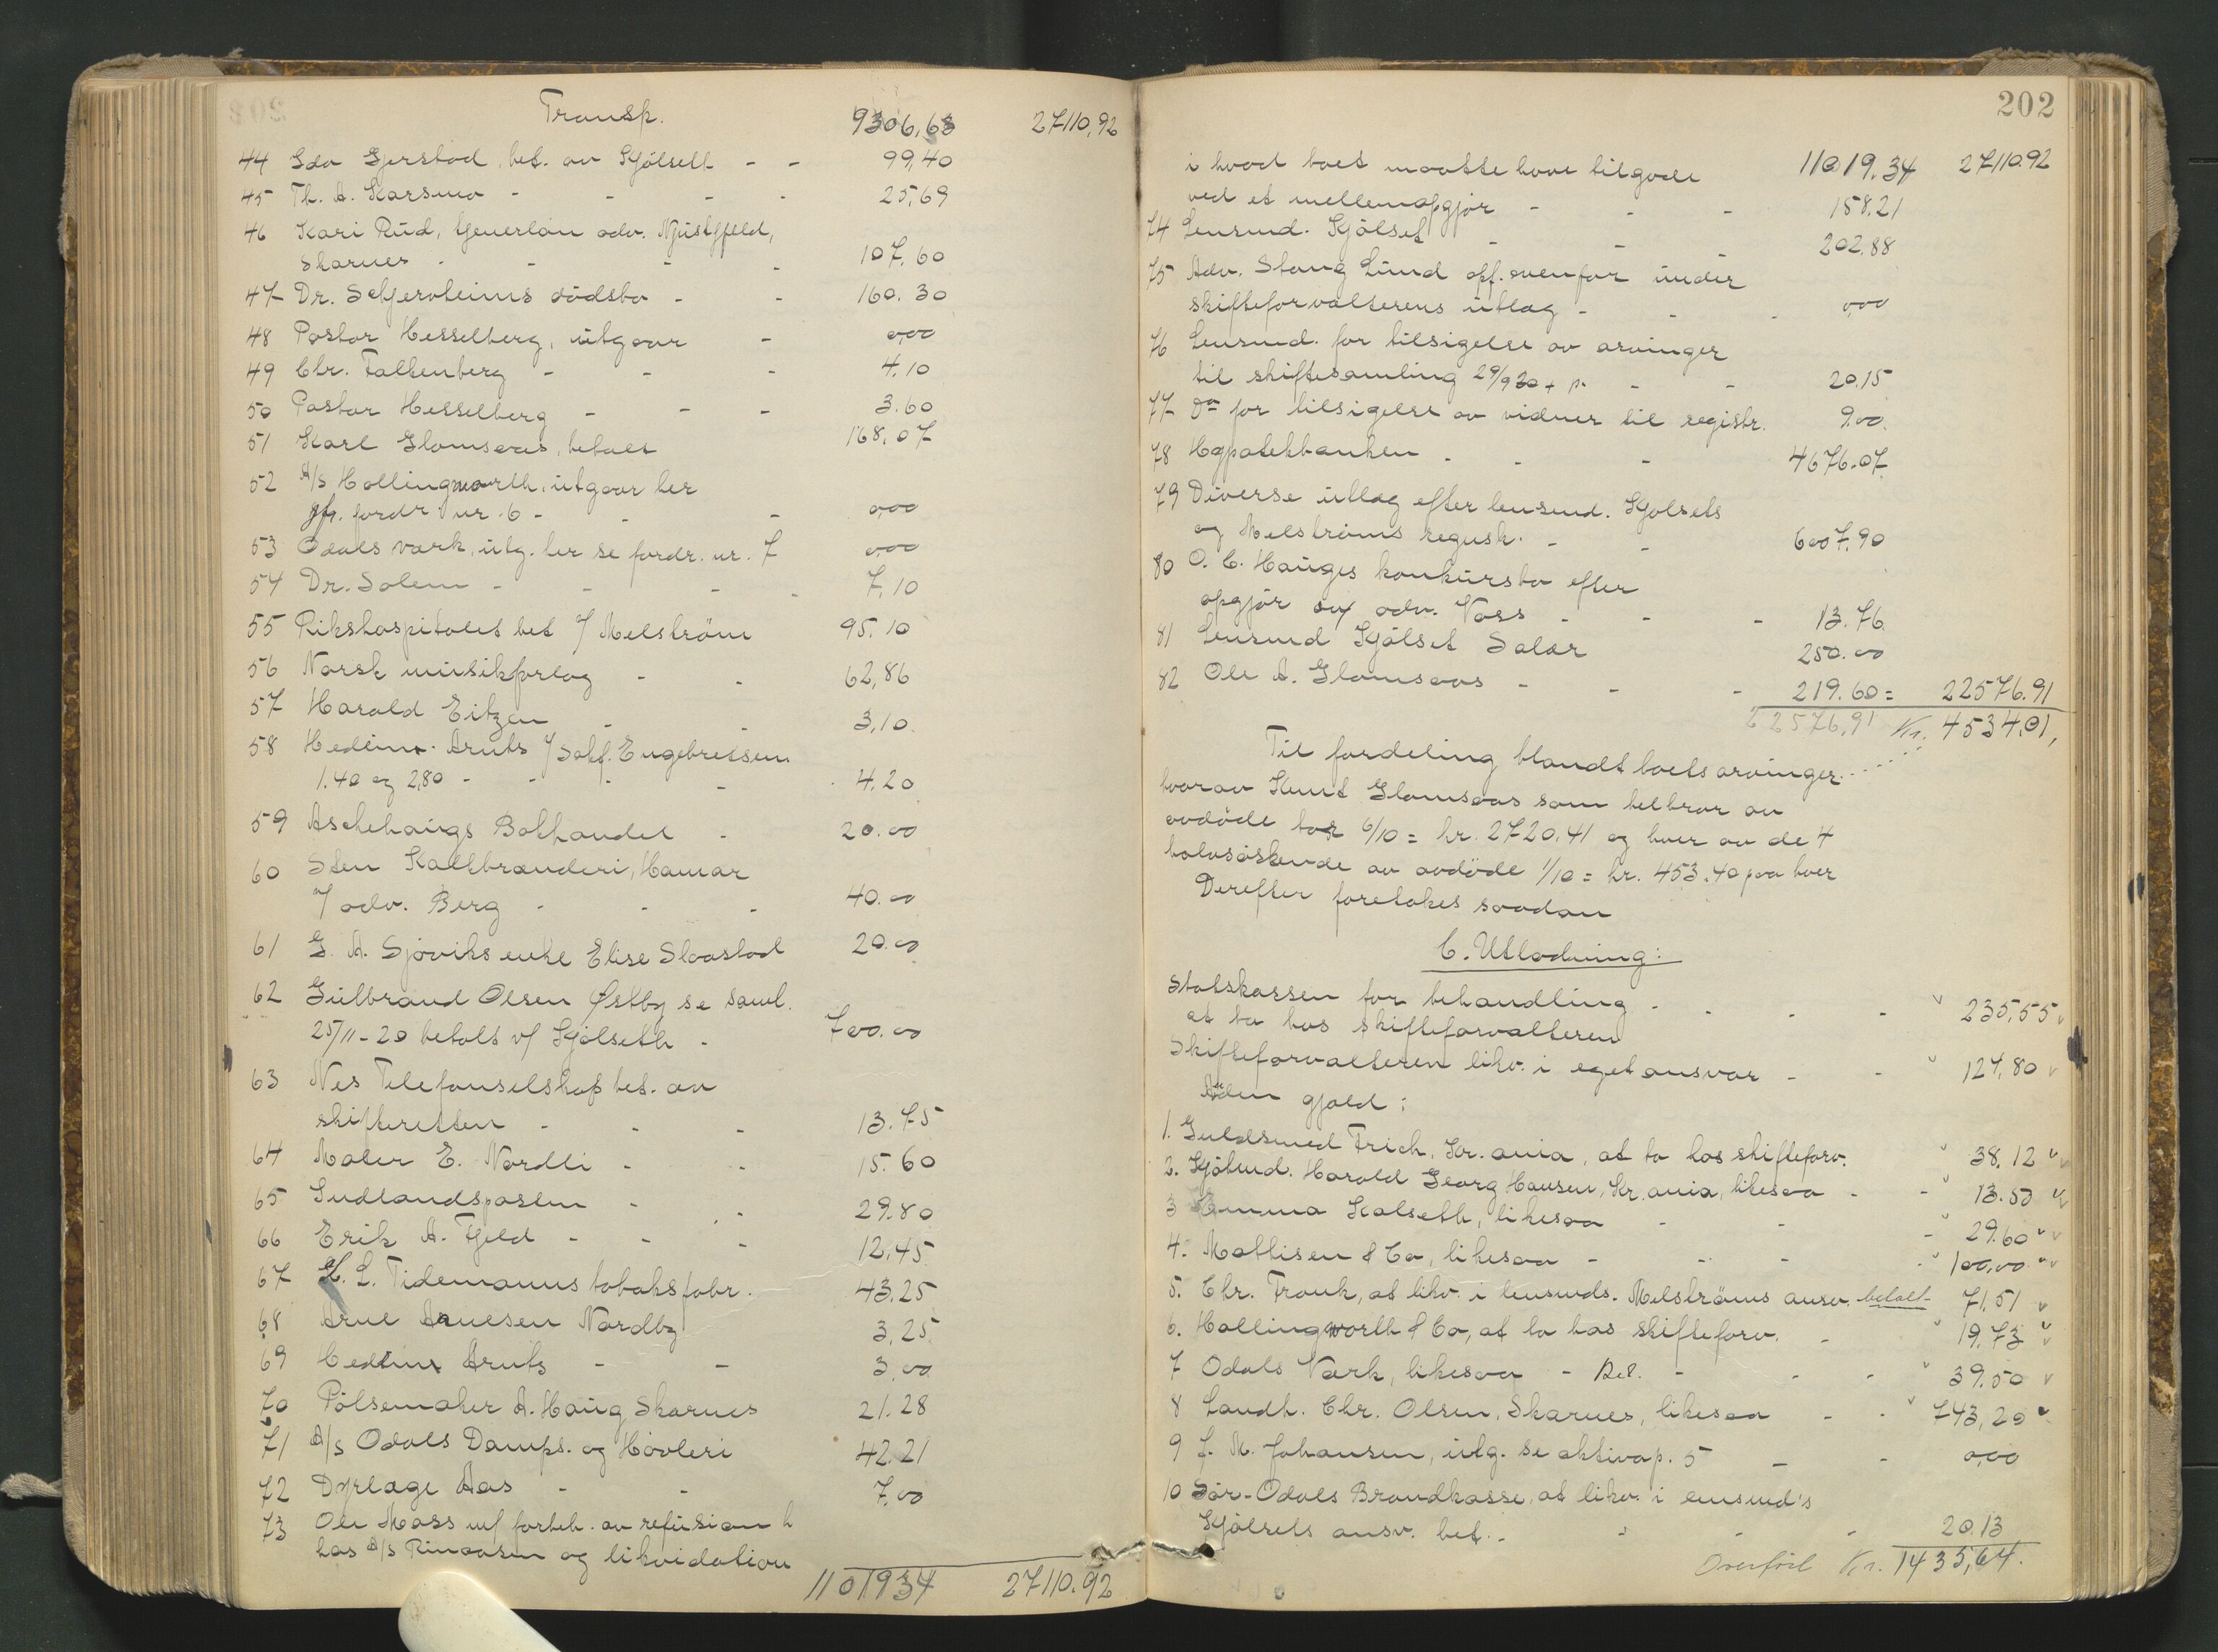 Transp. 9306,63 27110,92
44 Ida Gjerstad, bet. av Kjölsett - - 99,40
45 Th. A. Karsmo - - - - 25,69
46 Kari Rud, Henerlön adv.
Skarnes - - - - 107.60
47 Dr. dödsbo - - 160.30
48 Pastor Hesselberg, utgaar - 0,00
49 Chr. Falkenberg - - - 4.10
50 Pastor Hesselberg - - - 3.60
51 Karl Glomsaas, betalt 168.07
52 A/s Hollingworth, utgaar her
jfr. fordr. nr. 6 - - - 0,00
53 Odals værk, utg. her se fordr. nr. 7 0,00
54 Dr. Solem - - - - 7,10
55 Rikshospitalet bet v/ Melström 95.10
56 Norsk musikforlag - - 62,86
57 Harald Eitzen - - 3,10.
58 Hedem. Amts v/ Engebretsen
1.40 og 2,80 - - - - 4,20
59 Aschehaugs Bokhandel - 20.00
60 Sten Kalkbrænderi, Hamar
v/ adv. Berg - - - 40.00
61 G. A. Sjöviks enke Elise Slaastad 20.00
62 Gulbrand Olsen Østby se saml.
25/11-20 betalt v/ Kjölseth - 700.00
63 Nes Telefonselskap bet. av
skifteretten - - - 13.75
64 Maler E. Nordli - - 15.60
65 Indlandsposten - - 29.80
66 Erik A. Fjeld - - - 12,45.
67 H. L. Tidemanns tobaksfabr. 43,25
68 Arne Arnesen Nordby 3,25.
69 Hedem Amts - - 3,00.
70 Pölsemaker A. Haug Skarnes 21.28
71 A/s Odals Damps. og Hövleri 42.21
72 Dyrlæge Aas - - 7,00
73 Ole Moss m/ forbeh. av refusion h
hos A/s Rinaasen og likvidation
11019 34 27110.92
202
i hvad boet maatte have tilgode 11019.34 27110.92
ved et mellemopgjör - - - 158.21
74 Lensmd. Kjölset - - - 202.88
75 Adv. Stang Lund opf. ovenfor under
skifteforvalterens utlæg - - - 0,00
76 Lensmd. for tilsigelse av arvinger
til skiftesamling 29/9 20 + p. - - 20.15
77 Do for tilsigelse av vidner til registr. 9.00.
78 Hypotekbanken - - - 4676.07
79 Diverse utlæg efter lensmd. Kjölsets
og Melströms regnsk. - - 6007.90
80 O. C. Hauges konkursbo efter
opgjör av adv. Voss - - - 13.76
81 Lensmd Kjölset Salær 250.00
82 Ole A. Glomsaas - - - 219.60 = 22576.91
22576,91 Kr. 4534.01,
Til fordeling blandt boets arvinger....
hvorav Knut Glomsaas som helbror av
avdöde tar 6/10 = kr. 2720.41 og hver av de 4
halvsöskende av avdöde 1/10 = kr. 453.40 paa hver
Derefter foretakes saadan
C. Utlodning:
Statskassen for behandling - - - " 235,55 v
at ta hos skifteforvalteren
Skifteforvalteren likv. i eget ansvar - - " 124,80 v
Uten gjæld:
1. Guldsmed Frich, Kr.ania, at ta hos skifteforv. " 38.12 " v
2. Kjöbmd. Harald Georg Hansen, Kr.ania, likesaa - - " 13.50 " v
3 Emma Kalseth, likesaa - - - " 29.60 " v
4. Mathisen & Co, likesaa - - - - " 100,00 " v
5. Chr. Frank, at likv. i lensmds. Melströms ansv. betalt 71,51 v
6. Hollingworth & Co, at ta hos skifteforv. - " 19.73 " v
7 Odals Værk, likesaa - - - - " 39.50 v
8 Landh. Chr. Olsen, Skarnes, likesaa - - " 743,20 "
9 J. M. Johansen, utg. se aktivap. 5 - - 0,00
10 Sör-Odals Brandkasse, at likv. i lensmd's
Kjölsets ansv. bet. - - - - 20.13
Overfört Kr. 1435,64.